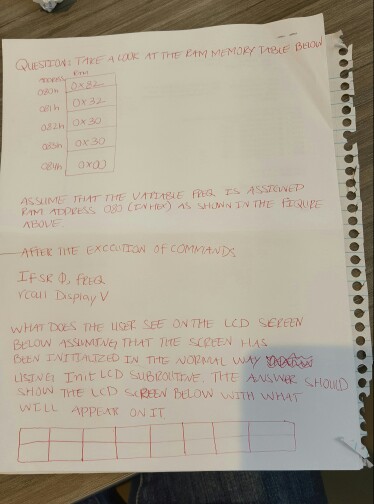 QUESTION: TAKE A LOOK AT THE RAM MEMORY TABLE BELOW
ADDRESS RAM
080h 0x32
081h 0x32
082h 0x30
083h 0x30
084h 0x00
ASSUME THAT THE VARIABLE FREQ IS ASSIGNED
RAM ADDRESS 080 (IN HEX) AS SHOWN IN THE FIGURE
ABOVE.
AFTER THE EXCUTION OF COMMANDS
lFSR 0, FREQ
rcall DisplayV
WHAT DOES THE USER SEE ON THE LCD SCREEN
BELOW ASSUMING THAT THE SCREEN HAS
BEEN INITIALIZED IN THE NORMAL WAY
USING InitLCD SUBROUTINE. THE ANSWER SHOULD
SHOW THE LCD SCREEN BELOW WITH WHAT
WILL APPEAR ON IT